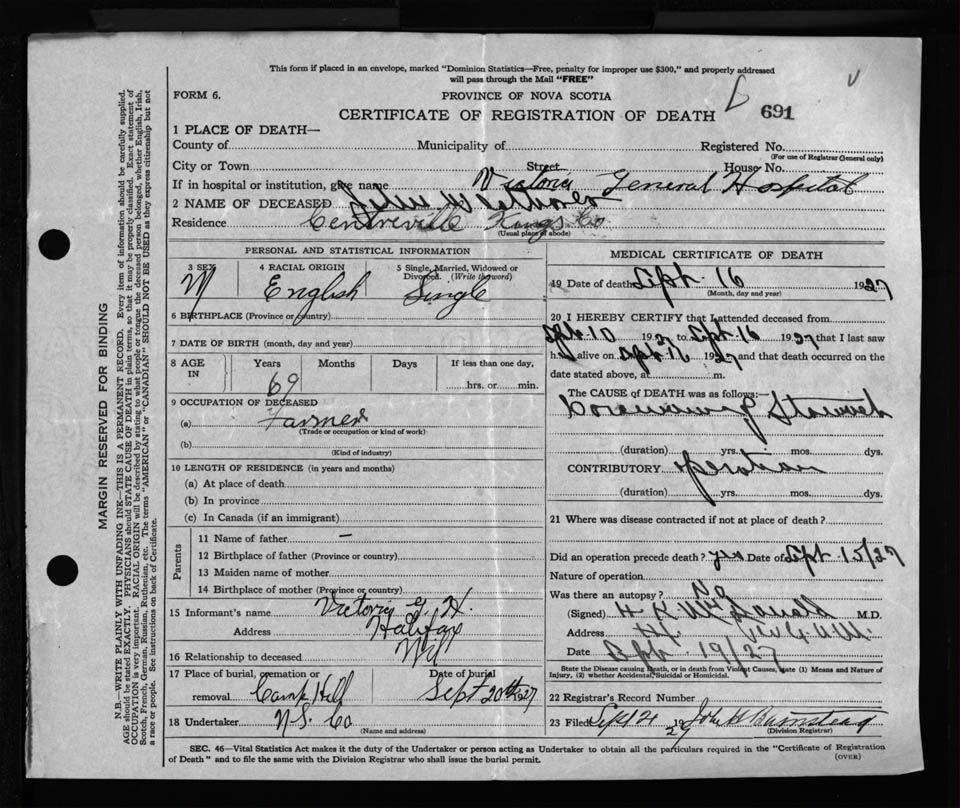 This form if placed in an envelope, marked "Dominion Statistics—Free, penalty for improper use $300," and properly addressed
will pass through the Mail "FREE"
FORM 6.
PROVINCE OF NOVA SCOTIA
CERTIFICATE OF REGISTRATION OF DEATH
691
1 PLACE OF DEATH—
County of Municipality of Registered No.
(For use of Registrar General only)
City or Town Street House No.
If in hospital or institution, give name Victoria General Hospital
2 NAME OF DECEASED
Residence Centreville Kings Co
(Usual place of abode)
PERSONAL AND STATISTICAL INFORMATION
3 SEX M
4 RACIAL ORIGIN English
5 Single, Married, Widowed or Divorced. (Write the word) Single
6 BIRTHPLACE (Province or country)
7 DATE OF BIRTH (month, day and year)
8 AGE IN Years 69 Months Days If less than one day, hrs. or min.
9 OCCUPATION OF DECEASED
(a) Farmer
(Trade or occupation or kind of work)
(b)
(Kind of industry)
10 LENGTH OF RESIDENCE (in years and months)
(a) At place of death
(b) In province
(c) In Canada (if an immigrant)
Parents
11 Name of father —
12 Birthplace of father (Province or country)
13 Maiden name of mother
14 Birthplace of mother (Province or country)
15 Informant's name Victoria G. H.
Address Halifax
16 Relationship to deceased
17 Place of burial, cremation or removal Camp Hill
Date of burial Sept 20th 1927
18 Undertaker N.S. Co
(Name and address)
MEDICAL CERTIFICATE OF DEATH
19 Date of death Sept. 16 1927
(Month, day and year)
20 I HEREBY CERTIFY that I attended deceased from
Sept. 10 1927 to Sept. 16 1927 that I last saw
h alive on Sept. 16 1927 and that death occurred on
date stated above, at m.
The CAUSE of DEATH was as follows:—
Carcinoma of Stomach
(duration) yrs. mos. dys.
CONTRIBUTORY Operation
(duration) yrs. mos. dys.
21 Where was disease contracted if not at place of death?
Did an operation precede death? yes Date of Sept. 15/27
Nature of operation
Was there an autopsy? No
(Signed) M.D.
Address
Date Sept. 19/27
State the Disease causing Death, or in death from Violent Causes, state (1) Means and Nature of
Injury, (2) whether Accidental, Suicidal or Homicidal.
22 Registrar's Record Number
23 Filed Sept 21 1927 John H Barnstead
(Division Registrar)
SEC. 46—Vital Statistics Act makes it the duty of the Undertaker or person acting as Undertaker to obtain all the particulars required in the "Certificate of Registration
of Death" and to file the same with the Division Registrar who shall issue the burial permit.
(OVER)
MARGIN RESERVED FOR BINDING
N.B.—WRITE PLAINLY WITH UNFADING INK—THIS IS A PERMANENT RECORD. Every item of information should be carefully supplied.
AGE should be stated EXACTLY. PHYSICIANS should STATE CAUSE OF DEATH in plain terms, so that it may be properly classified. Exact statement of
OCCUPATION is very important. RACIAL ORIGIN will be described by stating to what people or tongue the deceased person belonged, whether English, Irish,
Scotch, French, German, Russian, Ruthenian, etc. The terms "AMERICAN" or "CANADIAN" SHOULD NOT BE USED as they express citizenship but not
a race or people. See instructions on back of Certificate.